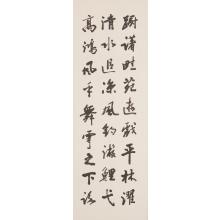 蹰躇畦苑遊戲平林濯
清水追涼風釣游鯉弋
高鴻風乎舞雩之下詠